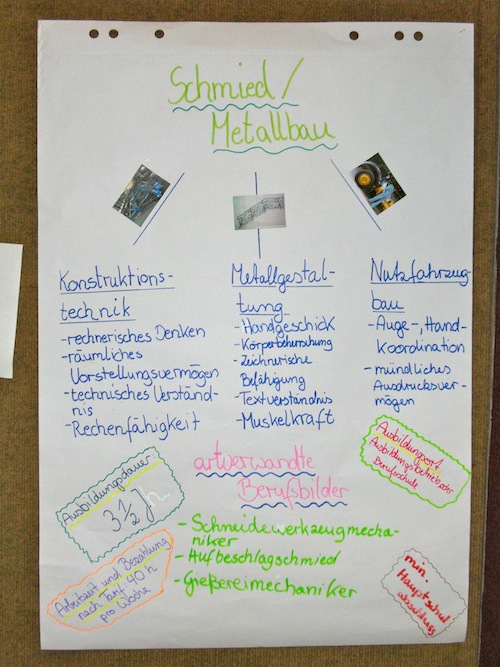 Schmied/
Metallbau
Konstruktions-
technik
-rechnerisches Denken
-räumliches
Vorstellungsvermögen
-technisches Verständ-
nis
-Rechenfähigkeit
Metallgestal-
tung
-Handgeschick
-Körperbeherrschung
-Zeichnerische
Befähigung
-Textverständnis
-Muskelkraft
Nutzfahrzeug-
bau
-Auge-, Hand-
Koordination
-mündliches
Ausdrucksver-
mögen
Ausbildungsort
Ausbildungsbetrieb oder
Berufsschule
artverwandte
Berufsbilder
-Schneidewerkzeugmecha-
niker
-Hufbeschlagschmied
-Gießereimechaniker
Ausbildungsdauer:
3 1/2 J
Arbeitzeit und Bezahlung
nach Tarif 40 h
pro Woche
min.
Hauptschul
abschluss